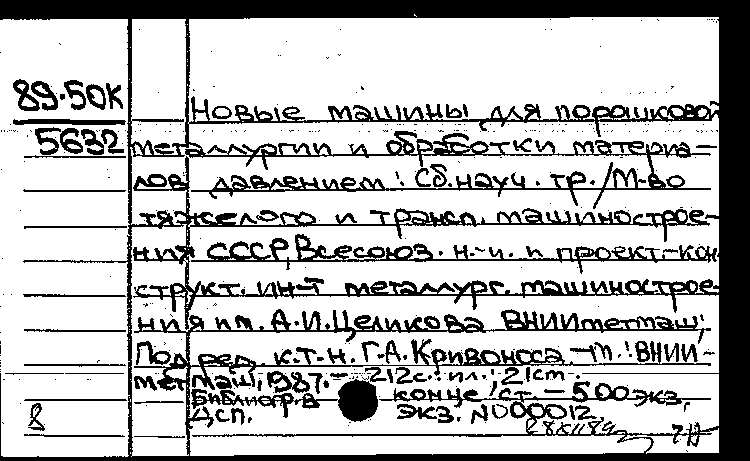 89-50К
5632
Новые машины для порошковой
металлургии и обработки материа-
лов давлением: Сб. науч. тр. / М-во
тяжелого и трансп. машинострое-
ния СССР, Всесоюз. н.-и. и проект.-кон-
структ. ин-т металлург. машинострое-
ния им. А.И. Целикова ВНИИметмаш;
Под ред. к.т.н. Г.А. Кривоноса. - М.: ВНИИ-
метмаш, 1987. - 212с.: ил.; 21см.
Библиогр. в конце ст. - 500 экз.
ДСП. экз. N000012.
8